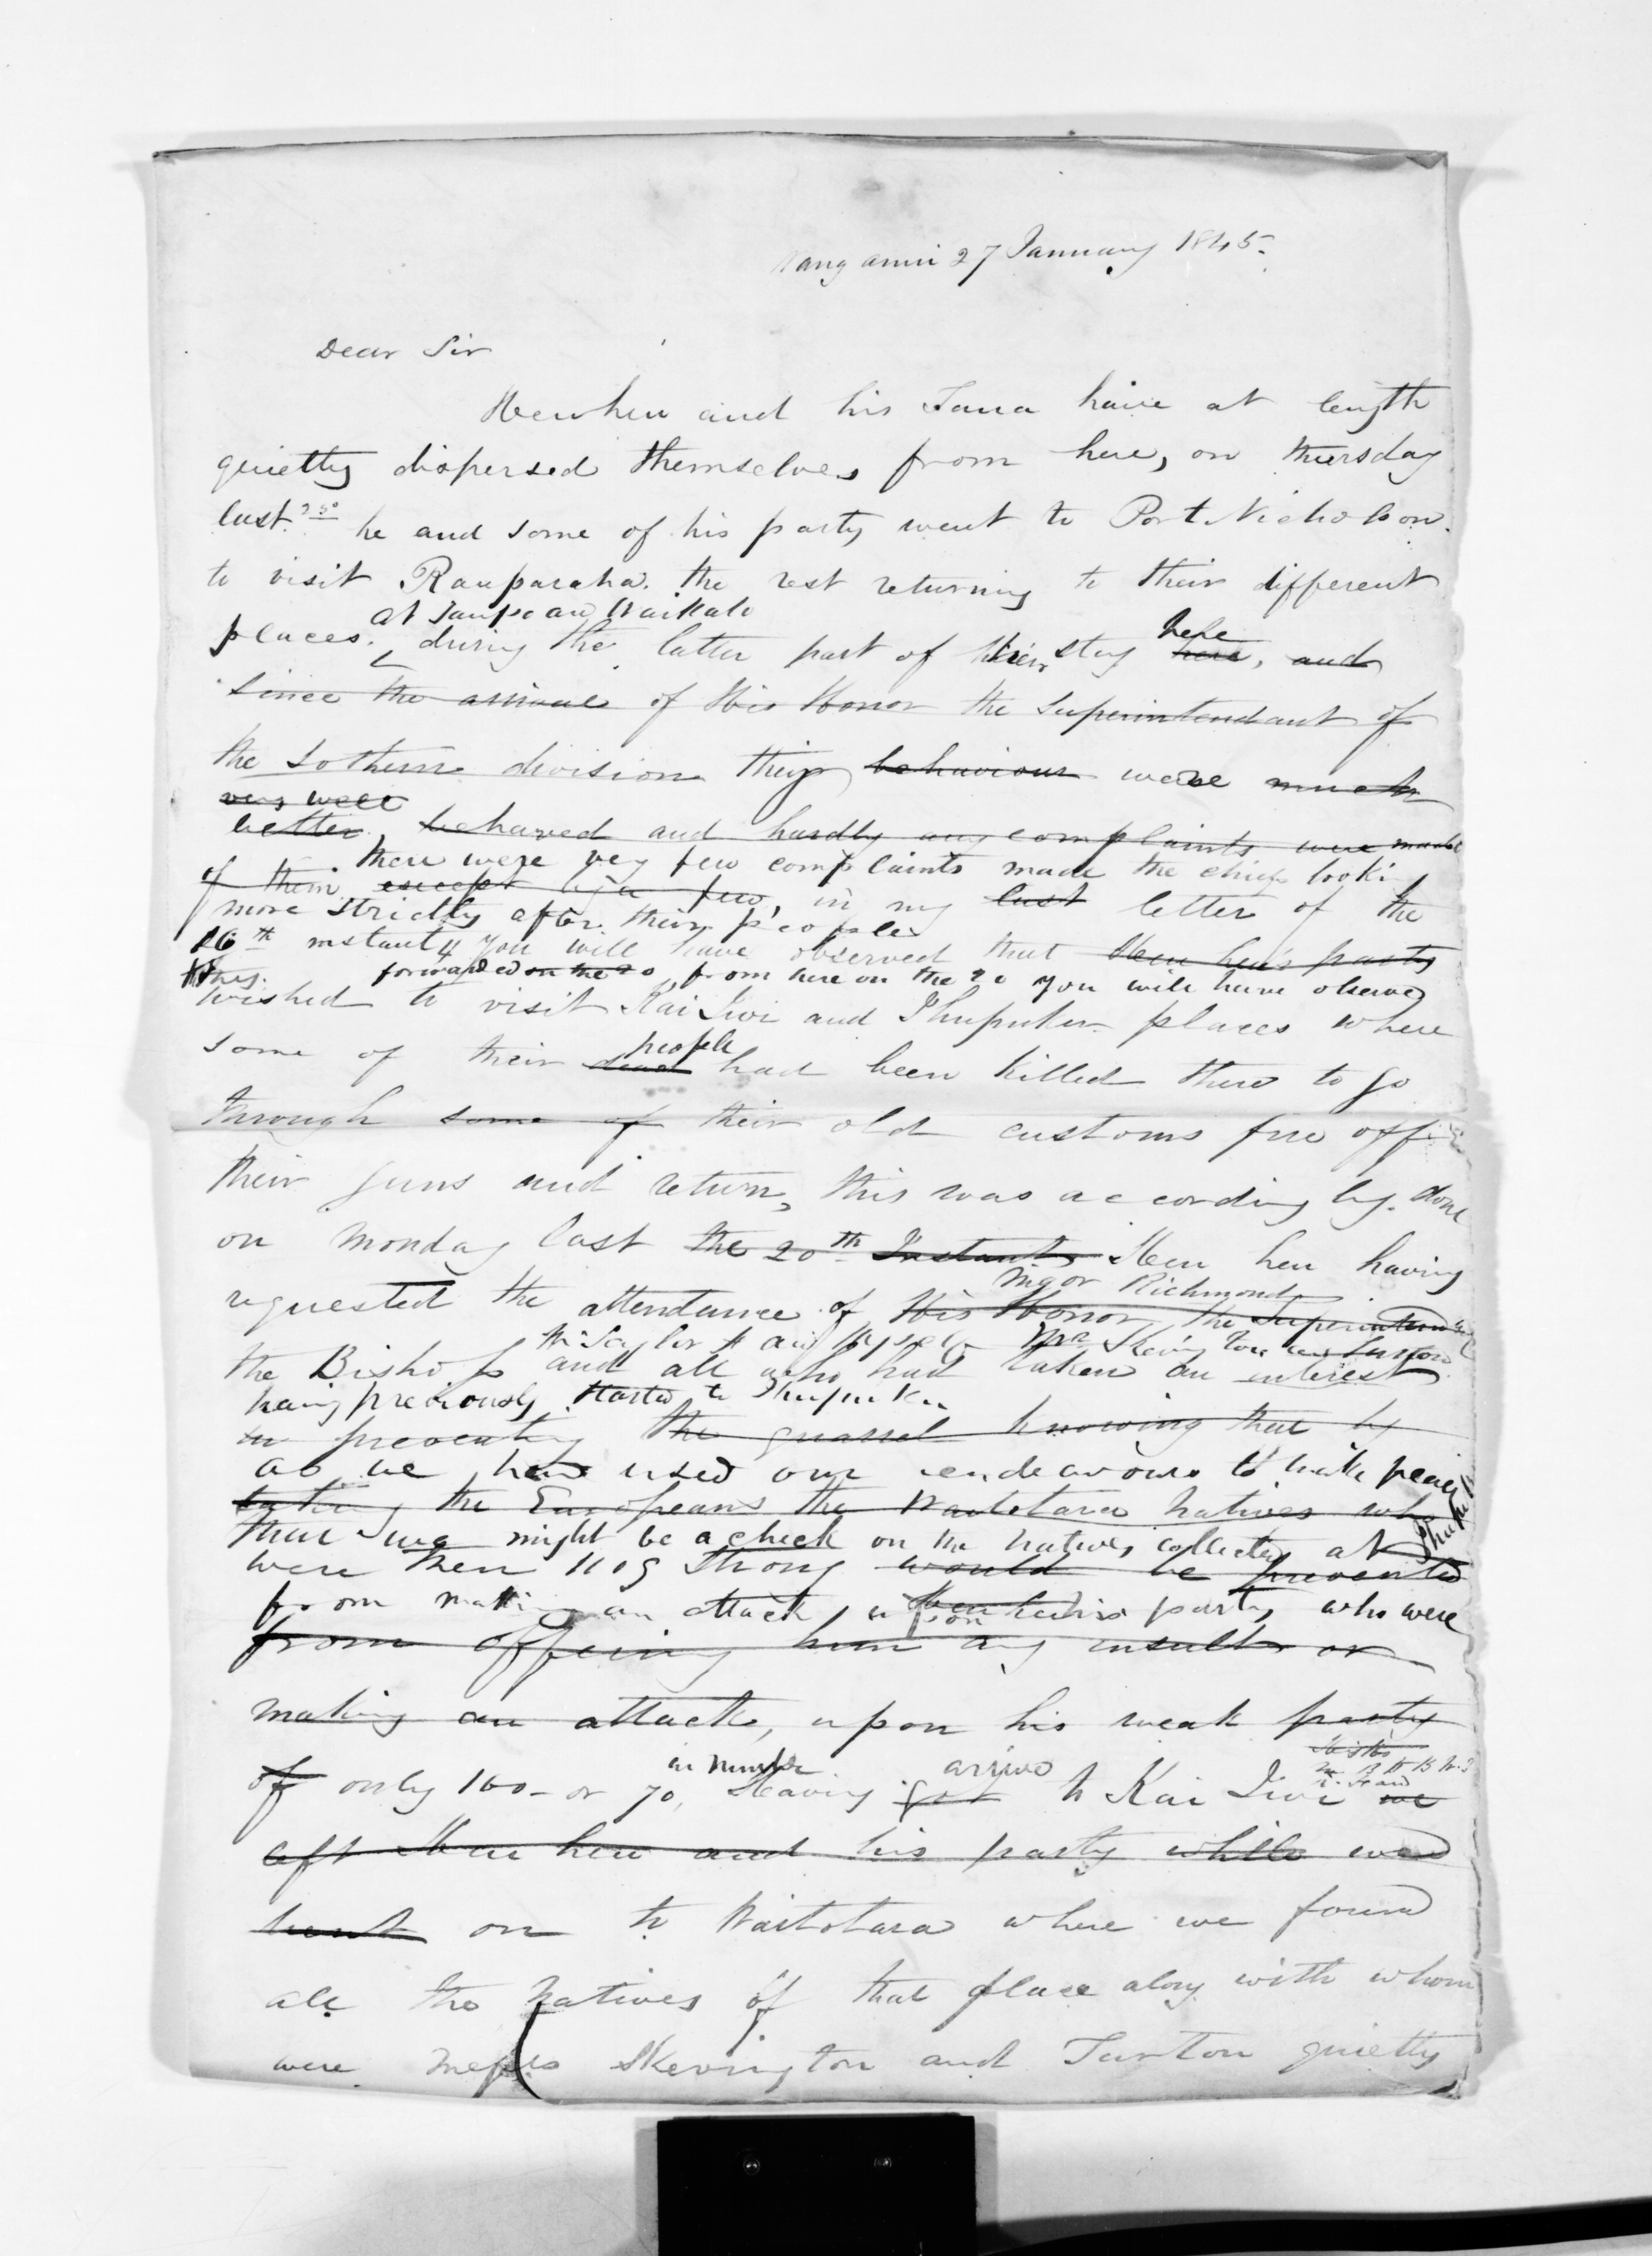 Wanganui 27 January 1845.
Dear Sir
Heuheu and his Taua have at length
quietly dispersed themselves from here, on thursday
last he and some of his party went to Port Nicholson
to visit Rauparaha. the rest returning to their different
at Taupo and Waikato
places. during the latter part of their stay here
here, and
since the arrival of His Honor the Superintendant of
the Sothern division they behaviour were much
very well
better, behaved and hardly any complaints were made
there were very few complaints made the chiefs looking
of them except by a few, in my last letter of the
more strictly after their people
16th instant you will have observed that Heu heu's party
they forwarded on the 20 from here on the 20 you will have observed
wished to visit Kai Iwi and Ihupuku places where
people
some of their dead had been killed there to go
through some of their old customs fire off
their guns and return, this was accordingly done
on Monday last the 20th Instant Heu heu having
Major Richmond
requested the attendance of His Honor the Superintendant
Mr Taylor and myself Mr Skevington and Turton
the Bishop and all who had taken an interest
having previously started to Ihupuku
in preventing the quarrel knowing that by
as we had used our endeavours to make peace
taking the Europeans the Waitotara Natives who
that we might be a check on the natives collected at Ihupuku
were then 1105 strong would be prevented
from making an attack upon Heu heu's party who were
from offering him any insult or
making an attack, upon his weak party
in number arrived
of only 160 or 70, Having got to Kai Iwi we
left Heu heu and his party while we
went on to Waitotara where we found
all the Natives of that place along with whom
were Messrs Skevington and Turton quietly